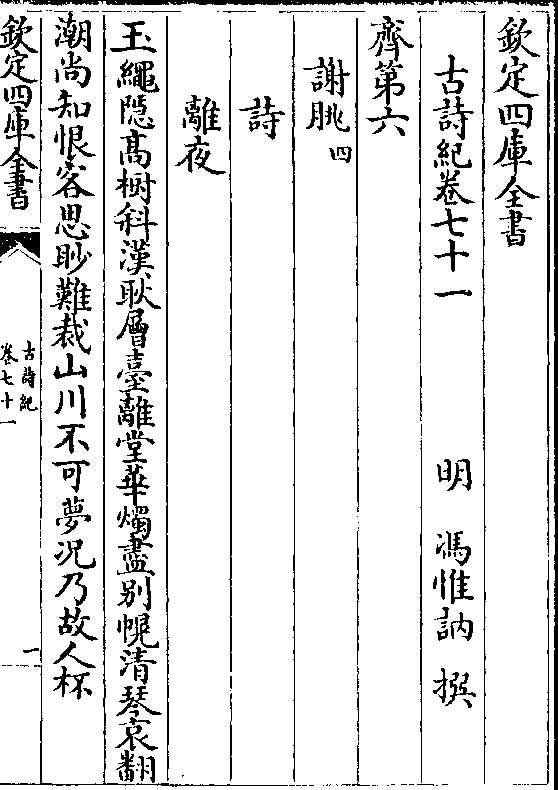 欽定四庫全書
古詩紀卷七十一 明 馮惟訥 撰
齊第六
謝朓 四
詩
離夜
玉繩隠髙樹斜漢耿層臺離堂華燭盡别幌清琴哀翻
潮尚知恨客思眇難裁山川不可夢况乃故人杯
欽定四庫全書
古詩紀
卷七十一
一